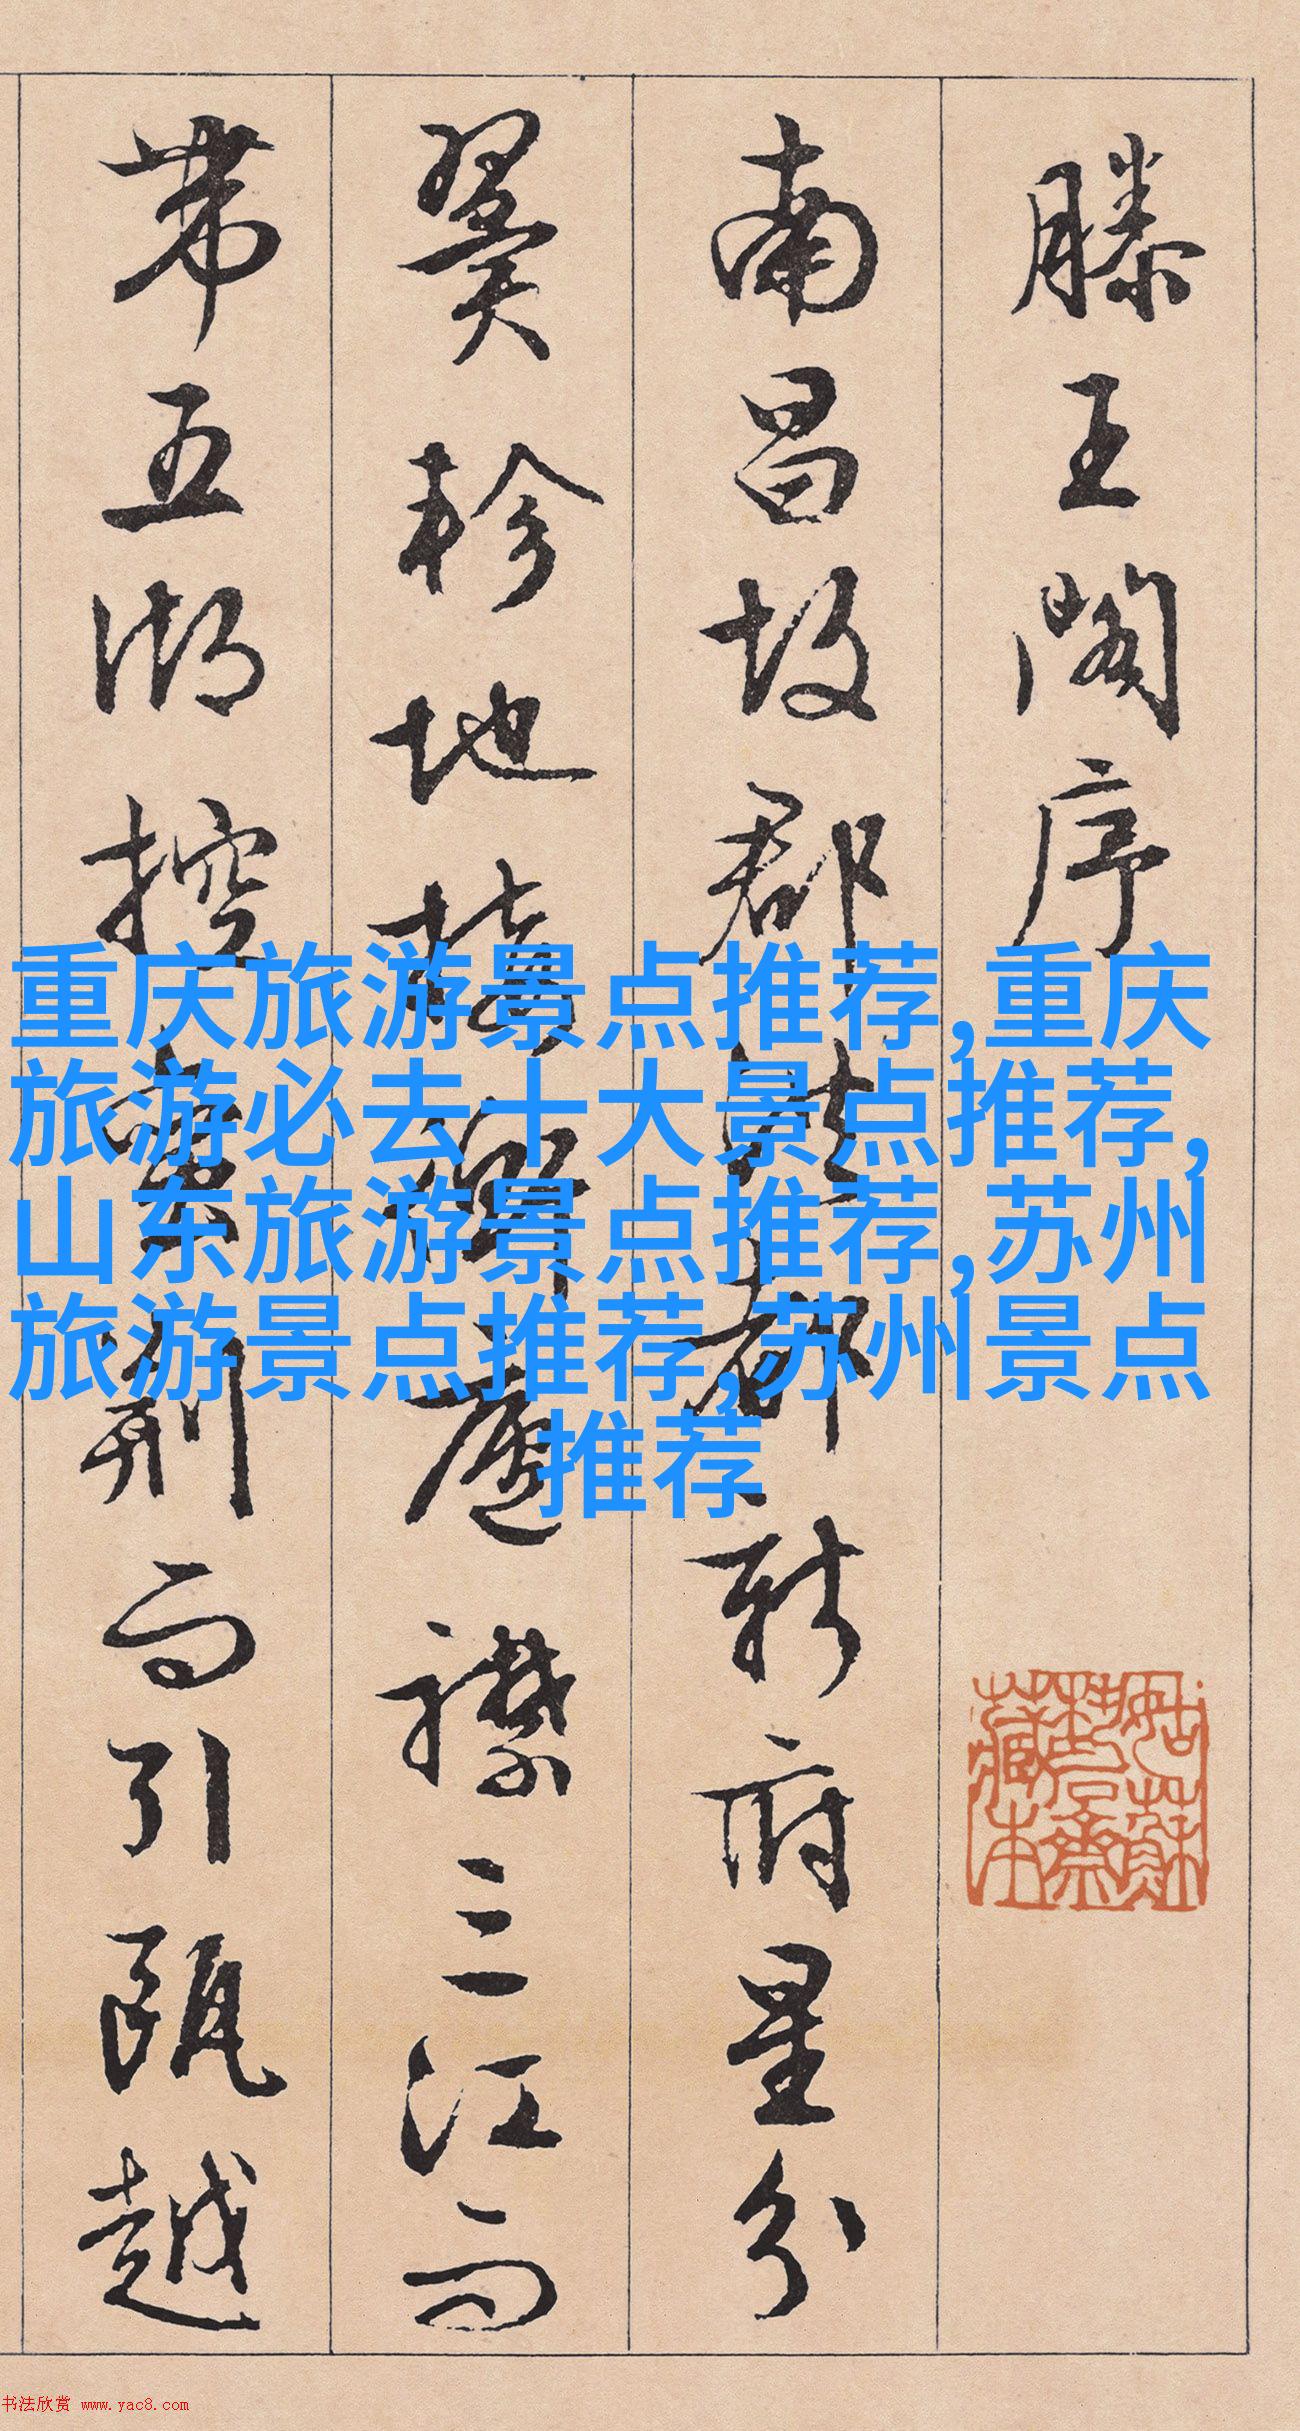 滕王阁序
南昌故郡洪都新府星分
翼轸地接衡庐襟三江而
带五湖控蛮荆而引瓯越
重庆旅游景点推荐,重庆
旅游必去十大景点推荐,
山东旅游景点推荐,苏州
旅游景点推荐,苏州景点
推荐
书法欣赏 www.yac8.com